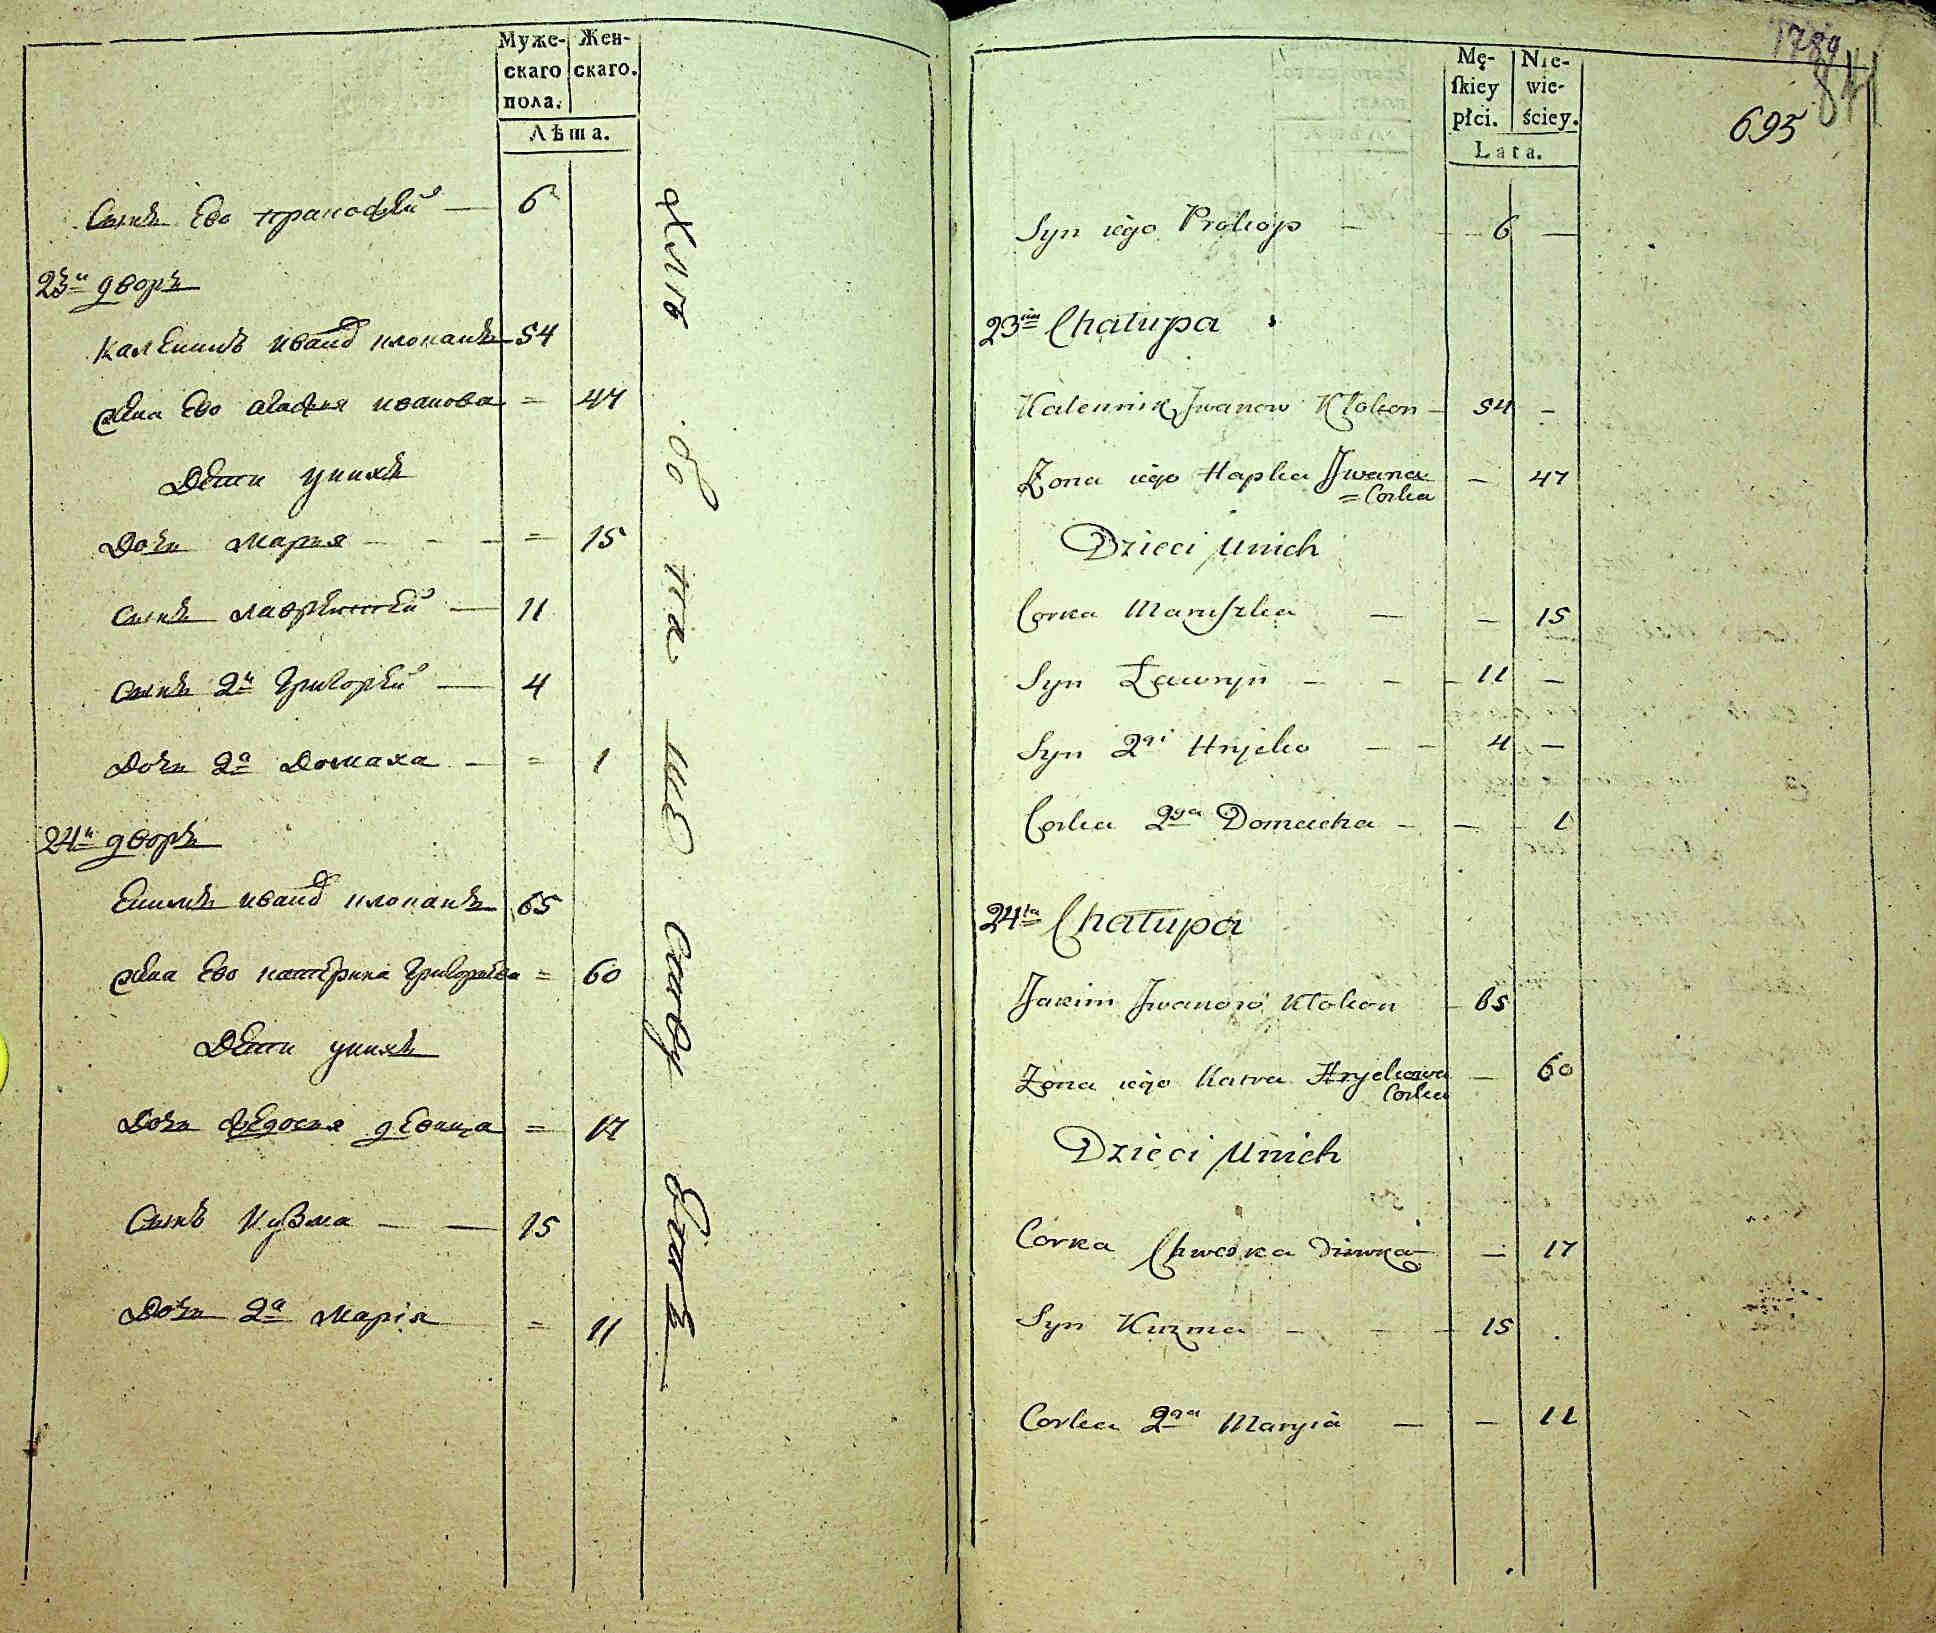 Муже-
скаго
пола.
Жен-
скаго.
Лѣта.
Сынъ Ево прокофей — 6
23й дворъ
Каленикъ иванов клоканъ 54
жена Ево агафия иванова = 47
Дети унихъ
Дочь Мария - - - = 15
Сынъ лаврентей — 11
Сынъ 2й Григорей — 4
Дочь 2а Домаха - = 1
24й дворъ
Екимъ иванов клоканъ 65
жена Ево катерина Григорьева = 60
Дети унихъ
Дочь Федосия девица = 17
Сынъ Кузма — — 15
Дочь 2а Мариѧ = 11
Mę-
ſkiey
płci.
Nie-
wie-
ściey.
Lata.
1789
841
695
Syn iego Prokop — - 6 —
23cia Chałupa
Kalennik Iwanow Kłokon - 54 -
Żona iego Hapka Iwana
= Corka - 47
Dzieci Unich
Corka Maruſzka — - 15
Syn Ławryn - - - 11 —
Syn 2gi Hryćko — - 4 —
Corka 2ga Domacha - - - 1
24ta Chałupa
Jakim Iwanow Kłokon - 65
Żona iego Katra Hryckowa
Corka — 60
Dzieci Unich
Corka Chweska Diewka - 17
Syn Kuzma - - - 15 .
Corka 2ga Maryia — - 11